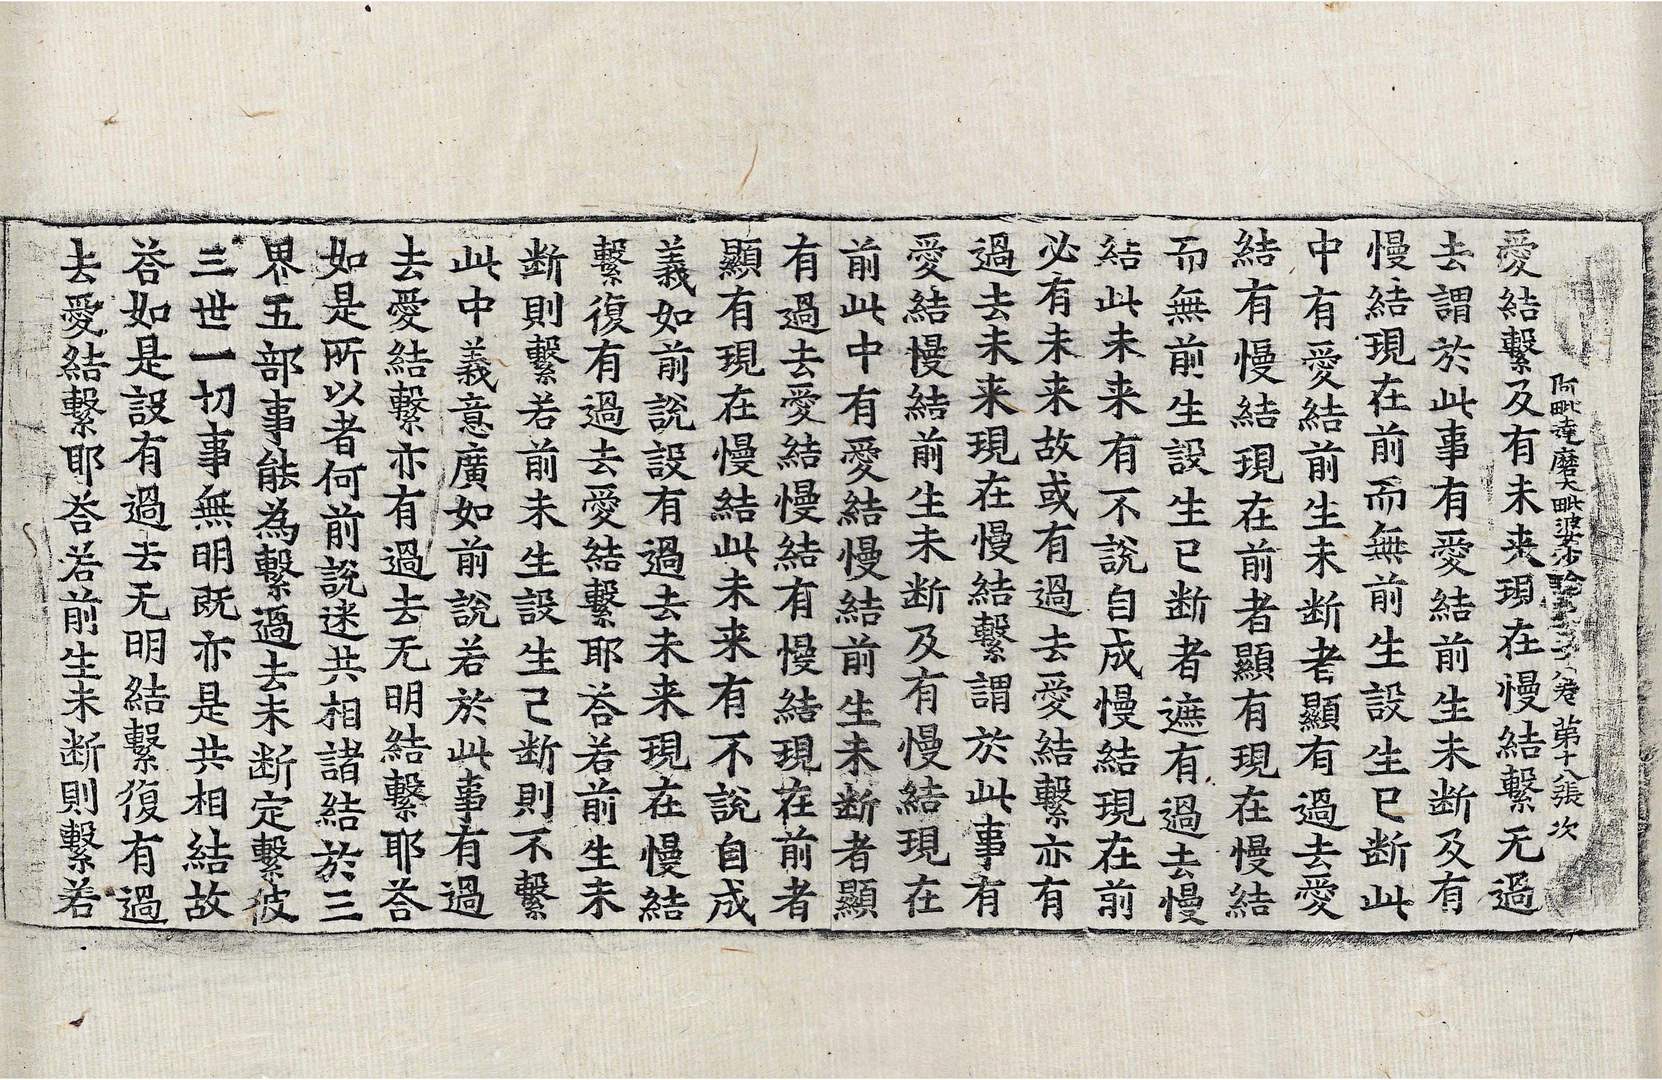 阿毗達磨大毗婆沙論 卷 第十八張 次
愛結繫及有未来現在慢結繫无過
去謂於此事有愛結前生未断及有
慢結現在前而無前生設生已断此
中有愛結前生未断者顯有過去愛
結有慢結現在前者顯有現在慢結
而無前生設生已断者遮有過去慢
結此未来有不說自成慢結現在前
必有未来故或有過去愛結繫亦有
過去未来現在慢結繫謂於此事有
愛結慢結前生未断及有慢結現在
前此中有愛結慢結前生未断者顯
有過去愛結慢結有慢結現在前者
顯有現在慢結此未来有不說自成
義如前說設有過去未来現在慢結
繫復有過去愛結繫耶荅若前生未
断則繫若前未生設生已断則不繫
此中義意廣如前說若於此事有過
去愛結繫亦有過去无明結繫耶荅
如是所以者何前說迷共相諸結於三
界五部事能為繫過去未断定繫彼
三世一切事無明既亦是共相結故
荅如是設有過去无明結繫復有過
去愛結繫耶荅若前生未断則繫若